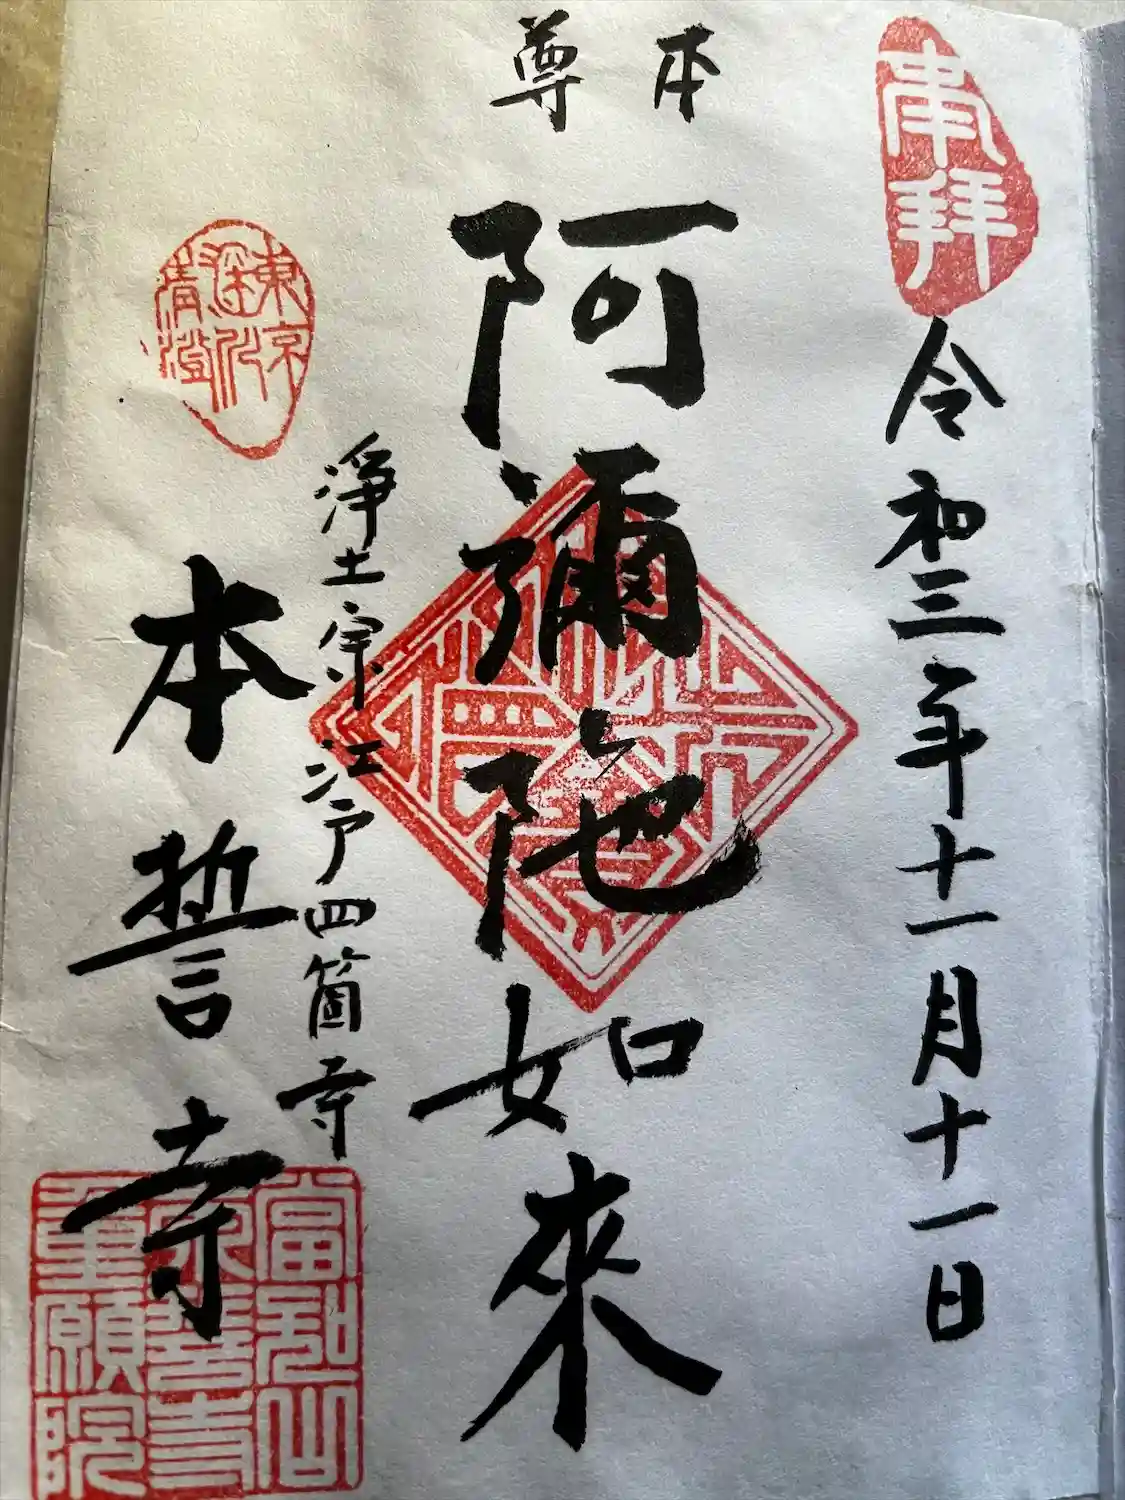 奉拝
令和三年十一月十一日
本尊
阿彌陀如來
淨土宗江戸四箇寺
本誓寺
東京
深川
清澄
當知山
本誓寺
重願院